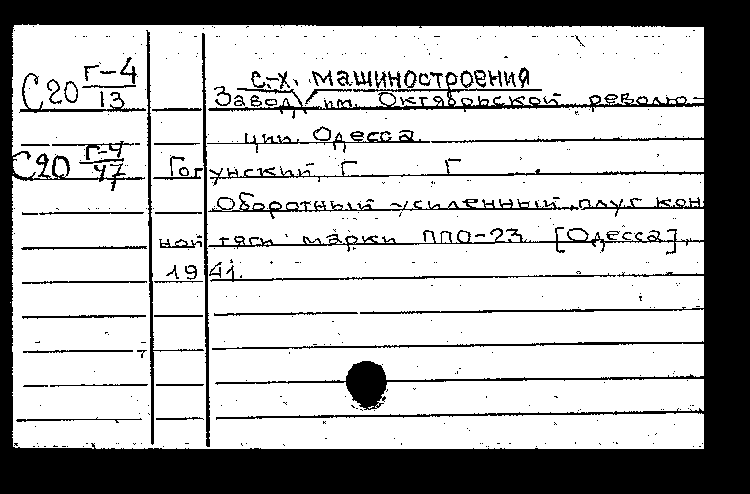 С20 Г-4/13
с.-х. машиностроения
Завод им. Октябрьской револю-
ции. Одесса.
С20 Г-4/47
Гогунский, Г. Г.
Оборотный усиленный плуг кон-
ной тяги марки ППО-23. [Одесса],
1941.